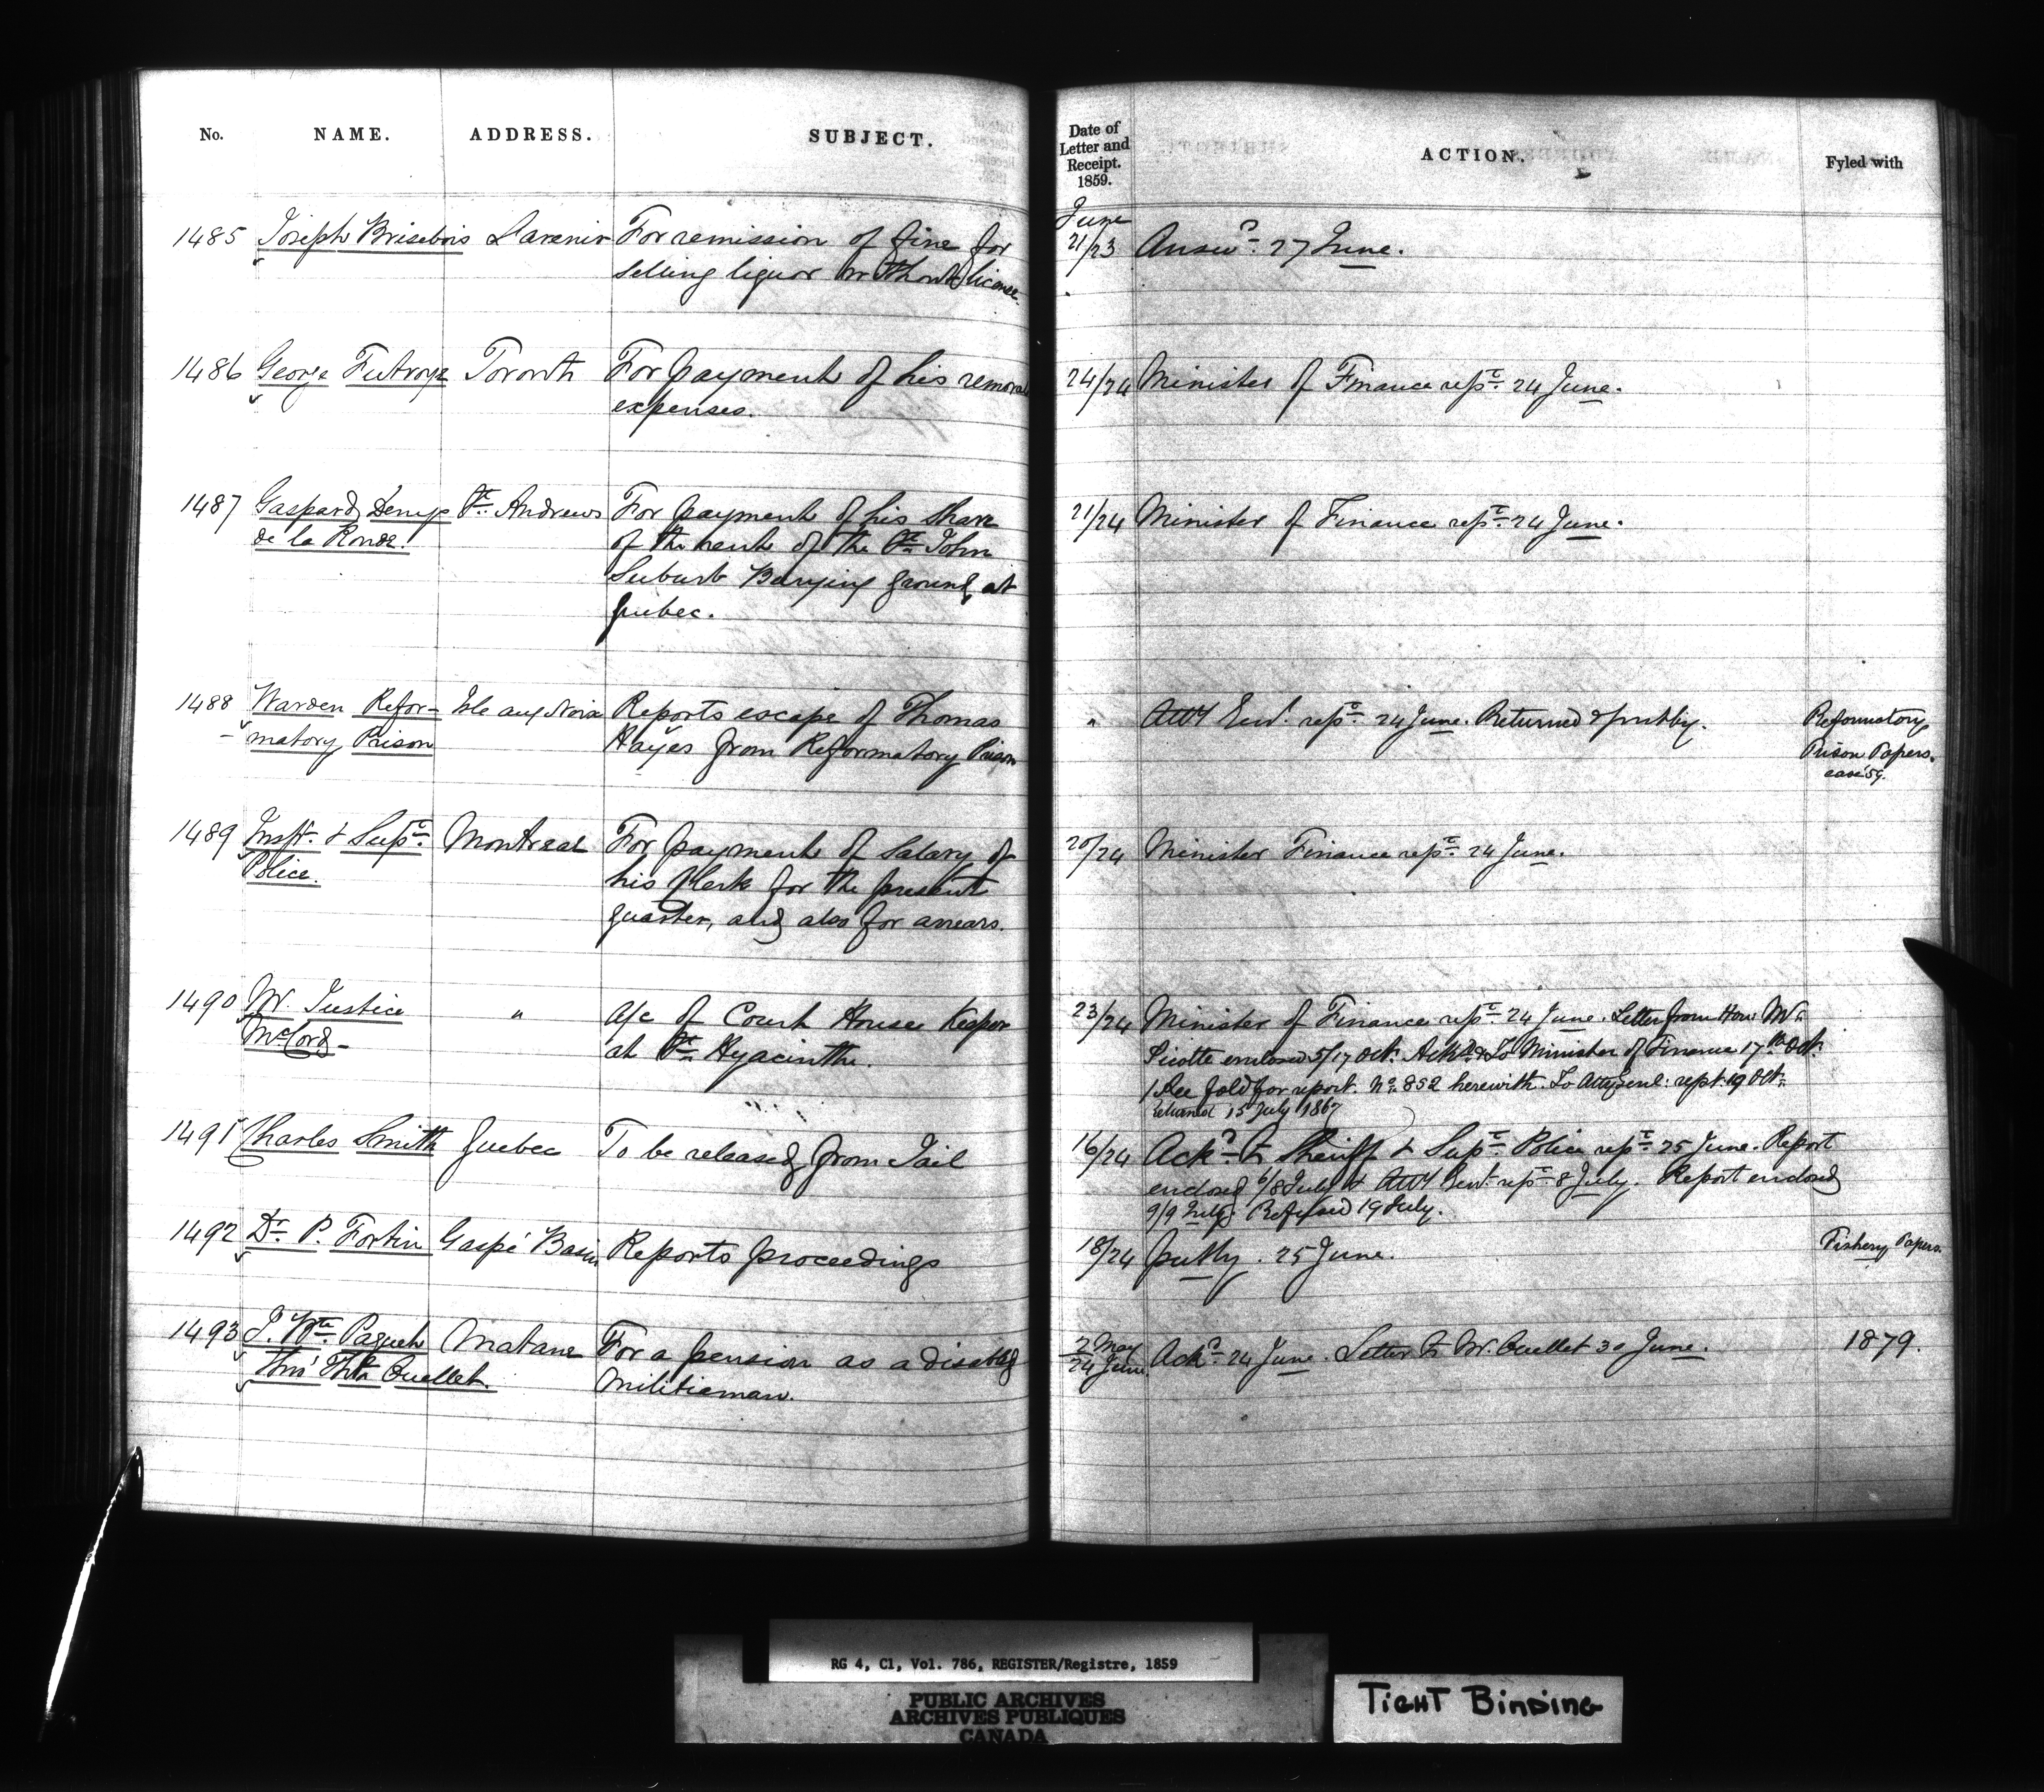 No. NAME. ADDRESS. SUBJECT.
1485 Joseph Brisebois Lavenir For remission of fine for
selling liquor without license.
1486 George Futvoye Toronto For payment of his removal
expenses.
1487 Gaspard Denys St. Andrews For payment of his share
de la Ronde. of the rent of the St. John
Suburb Burying ground, at
Quebec.
1488 Warden Refor- Isle aux Noix Reports escape of Thomas
matory Prison Hayes from Reformatory Prison
1489 Inspr. & Supt. Montreal For payment of salary of
Police. his Clerk for the present
quarter, and also for arrears.
1490 Mr. Justice " A/c of Court House Keeper
McCord at St. Hyacinthe.
1491 Charles Smith Quebec To be released from Jail
1492 Dr. P. Fortin Gaspé Basin Reports proceedings
1493 J. Bte. Paquet Matane For a pension as a disabled
Thro' Ouellet. Militiaman.
Date of
Letter and
Receipt.
1859. ACTION. Fyled with
June
21/23 Answd. 27 June.
24/24 Minister of Finance rept. 24 June.
21/24 Minister of Finance rept. 24 June.
" Atty Genl. rept. 24 June. Returned & putby. Reformatory
Prison Papers.
case '59.
20/24 Minister Finance rept. 24 June.
23/24 Minister of Finance rept. 24 June. Letter from Hon. Mr.
Sicotte enclosed 5/17 Oct. Ackd. & To Minister of Finance 17th Oct.
See fold for report. No. 852 herewith. To Atty Genl. rept. 19 Oct.
Returned 15 July 1867
16/24 Ackd. To Sheriff & Supt. Police rept. 25 June. Report
enclosed 6/8 July & Atty Genl. rept. 8 July. Report enclosed
9/9 July. Refused 19 July.
18/24 putby. 25 June. Fishery Papers.
2 May
24 June. Ackd. 24 June. Letter to Mr. Ouellet 30 June. 1879.
RG 4, C1, Vol. 786, REGISTER/Registre, 1859
PUBLIC ARCHIVES
ARCHIVES PUBLIQUES
CANADA
TIGHT BINDING